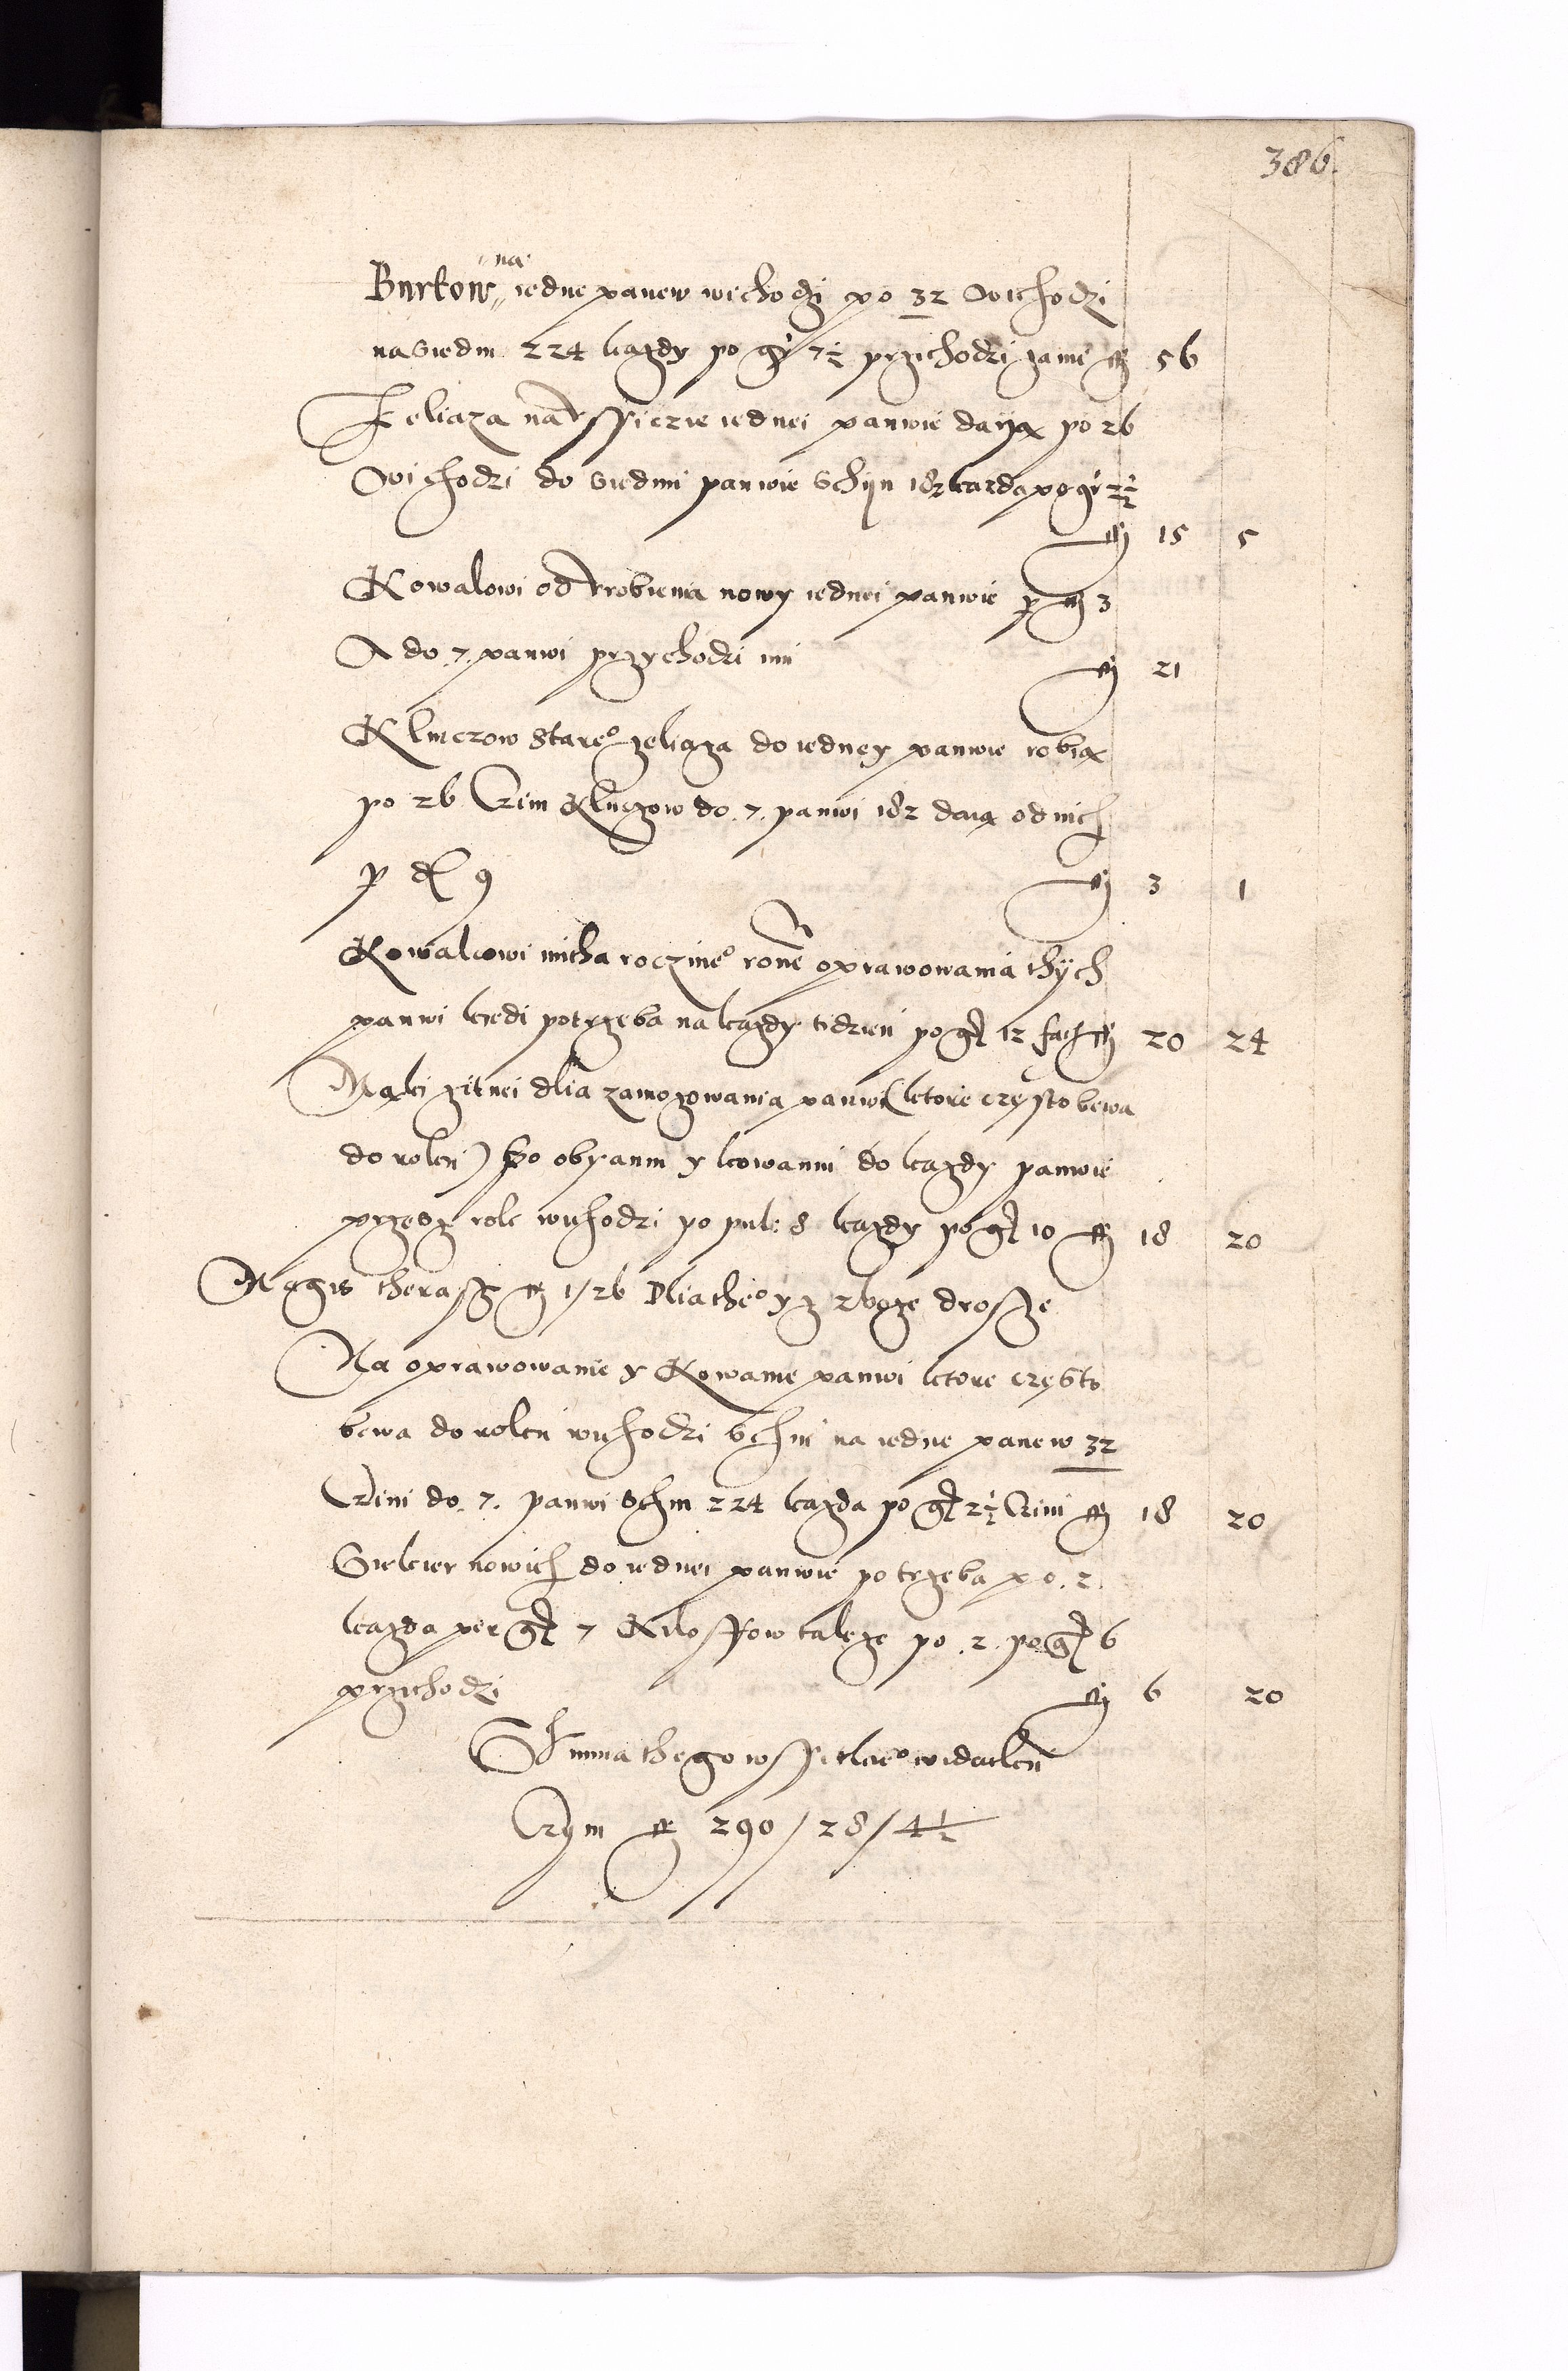 386.
na
Burtow iedne panew wichodzi po 32 Wichodzi
na siedm 224 kazdy po gr 7½ przichodzi zanie fl 56
Zeliaza na wsparcie iednei panwie daija po 26
Wichodzi do siedmi panwie Schijn 182 kazda po gr 2½
fl 15 5
Kowalowi od zrobienia nowy iednei panwie p fl 3
A do .7. panwi przychodzi mu fl 21
Kluczow Stare° zeliaza do iedney panwie robia
po 26 Czini Kluczow do .7. panwi 182 daia od nich
p d 9 fl 3 1
Kowalcowi mitha rocznie° rone oprawowania thÿch
panwi kiedi potrzeba na kazdy tidzień po gr 12 facit fl 20 24
Maki zitnei dlia zamozowania panwi (ktore często bewa
do roku) po obyaniu y kowaniu do kazdy panwie
przes rok wichodzi po pul: 8 kazdy po gr 10 fl 18 20
Magis therasz fl 1/26 Dliathe° yz zboze drosze
Na oprawowanie y Kowanie panwi ktore często
bewa do roku wichodzi Schin na iedne panew 32
Czini do .7. panwi Schin 224 kazda po gr 2½ Czini fl 18 20
Siekier nowich do iednei panwie potrzeba po .2.
kazda per gr 7 Kiloffow takze po .2. po gr 6
przichodzi fl 6 20
Summa thego wszitkie° widatku
Czyni fl 290/28/4½